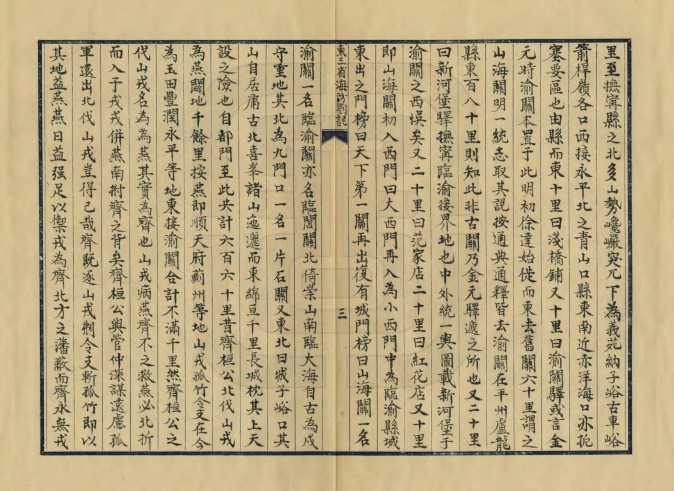 里至撫寧縣之北多山勢巉巖突兀下為義苑納子峪古車峪
箭桿嶺各口西接永平北之青山口縣東南近赤洋海口亦扼
塞要區也由縣而東十里曰淺橋鋪又十里曰渝關驛或言金
元時渝關本置于此明初徐達始徙而東去舊關六十里謂之
山海關明一統志取其說按通典通釋皆云渝關在平州盧龍
縣東百八十里則知此非古關乃金元驛遞之所也又二十里
曰新河堡驛撫寧臨渝接界地也中外統一輿圖載新河堡于
渝關之西悞矣又二十里曰范家店二十里曰紅花店又十里
即山海關初入西門曰大西門再入為小西門中為臨渝縣城
東出之門榜曰天下第一關再出復有城門榜曰山海關一名
東三省海防劄記
三
渝關一名臨渝關亦名臨閭關北倚崇山南臨大海自古為戍
守重地其北為九門口一名一片石關又東北曰城子峪口其
山自居庸古北喜峯諸山迤邐而東綿亘千里長城枕其上天
設之險也自都門至此共計六百六十里昔齊桓公北伐山戎
為燕闢地千餘里按燕即順天府薊州等地山戎孤竹令支在今
為玉田豐潤永平等地東接渝關合計不滿千里然齊桓公之
代山戎名為為燕其實為齊也山戎病燕齊不之救燕必北折
而入于戎戎併燕南拊齊之背矣齊桓公與管仲深謀遠慮孤
軍遠出北伐山戎豈得已哉齊既逐山戎刜令支斬孤竹即以
其地益燕燕日益强足以禦戎為齊北方之藩蔽而齊永無戎